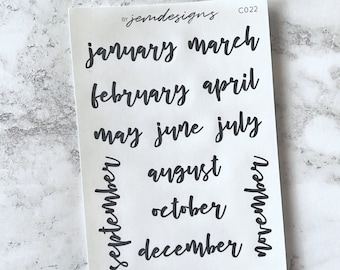 BY jemdesigns C022
january march
february april
may june july
september
august
november
october
december